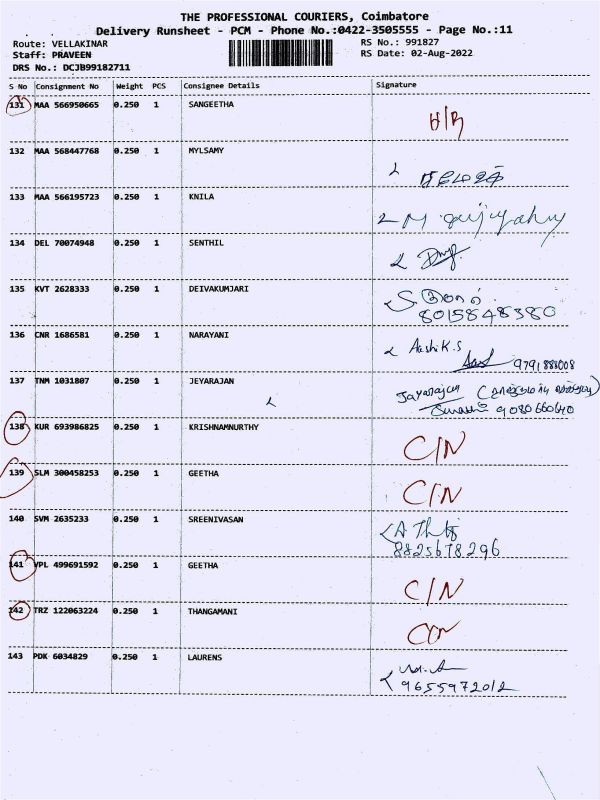 THE PROFESSIONAL COURIERS, Coimbatore
Delivery Runsheet - PCM - Phone No.:0422-3505555 - Page No.:11
Route: VELLAKINAR
RS No.: 991827
Staff: PRAVEEN
RS Date: 02-Aug-2022
DRS No.: DCJB99182711
S No Consignment No Weight PCS Consignee Details Signature
131 MAA 566950665 0.250 1 SANGEETHA
132 MAA 568447768 0.250 1 MYLSAMY
133 MAA 566195723 0.250 1 KNILA
134 DEL 70074948 0.250 1 SENTHIL
135 KVT 2628333 0.250 1 DEIVAKUMJARI
8015848380
136 CNR 1686581 0.250 1 NARAYANI Aashik.S
9791888008
137 TNM 1031807 0.250 1 JEYARAJAN Jayarajan
9080660640
138 KUR 693986825 0.250 1 KRISHNAMNURTHY C/N
139 SLM 300458253 0.250 1 GEETHA C/N
140 SVM 2635233 0.250 1 SREENIVASAN
8825678296
141 VPL 499691592 0.250 1 GEETHA C/N
142 TRZ 122063224 0.250 1 THANGAMANI C/N
143 PDK 6034829 0.250 1 LAURENS
9655972012